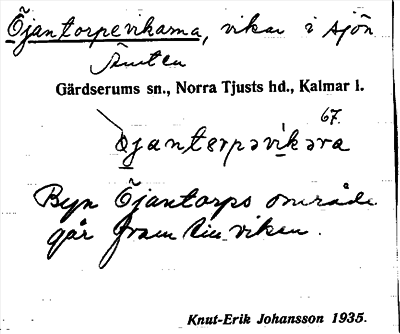 Öjantorpevikarna, vikar i sjön
Gärdserums sn., Norra Tjusts hd., Kalmar l.
67.
öjantərpəvikəra
Byn Öjantorps område
går fram till viken.
Knut-Erik Johansson 1935.